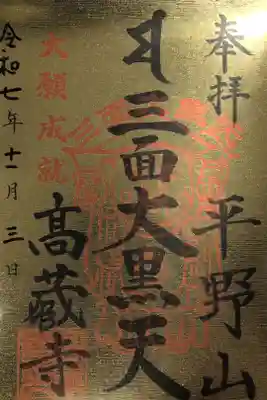 奉拝
平野山
三面大黒天
大願成就
高蔵寺
令和七年十一月三日